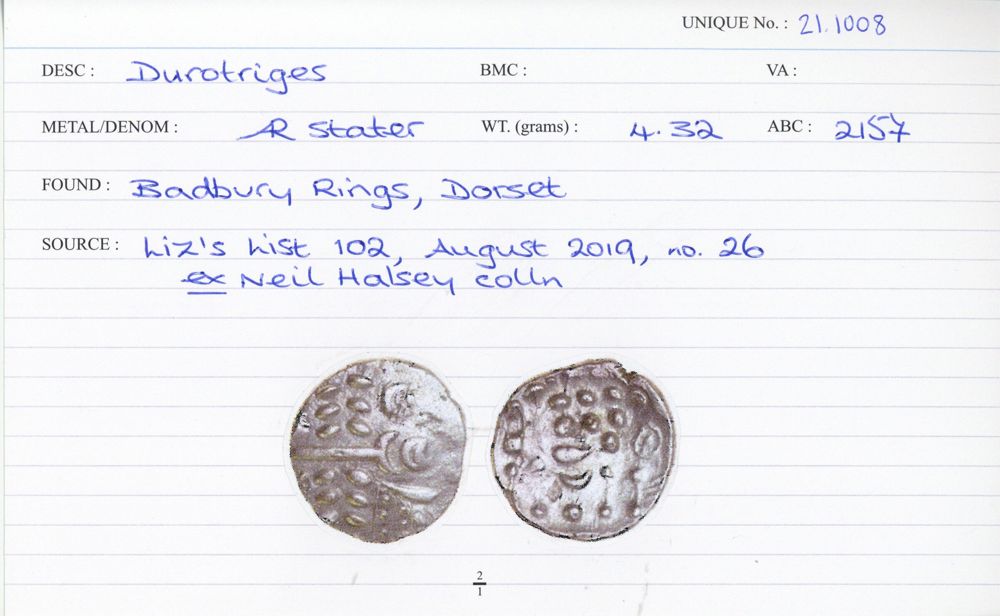 UNIQUE No. : 21.1008
DESC : Durotriges BMC : VA :
METAL/DENOM : AR Stater WT. (grams) : 4.32 ABC : 2157
FOUND : Badbury Rings, Dorset
SOURCE : Liz's List 102, August 2019, no. 26
ex Neil Halsey colln
2
1